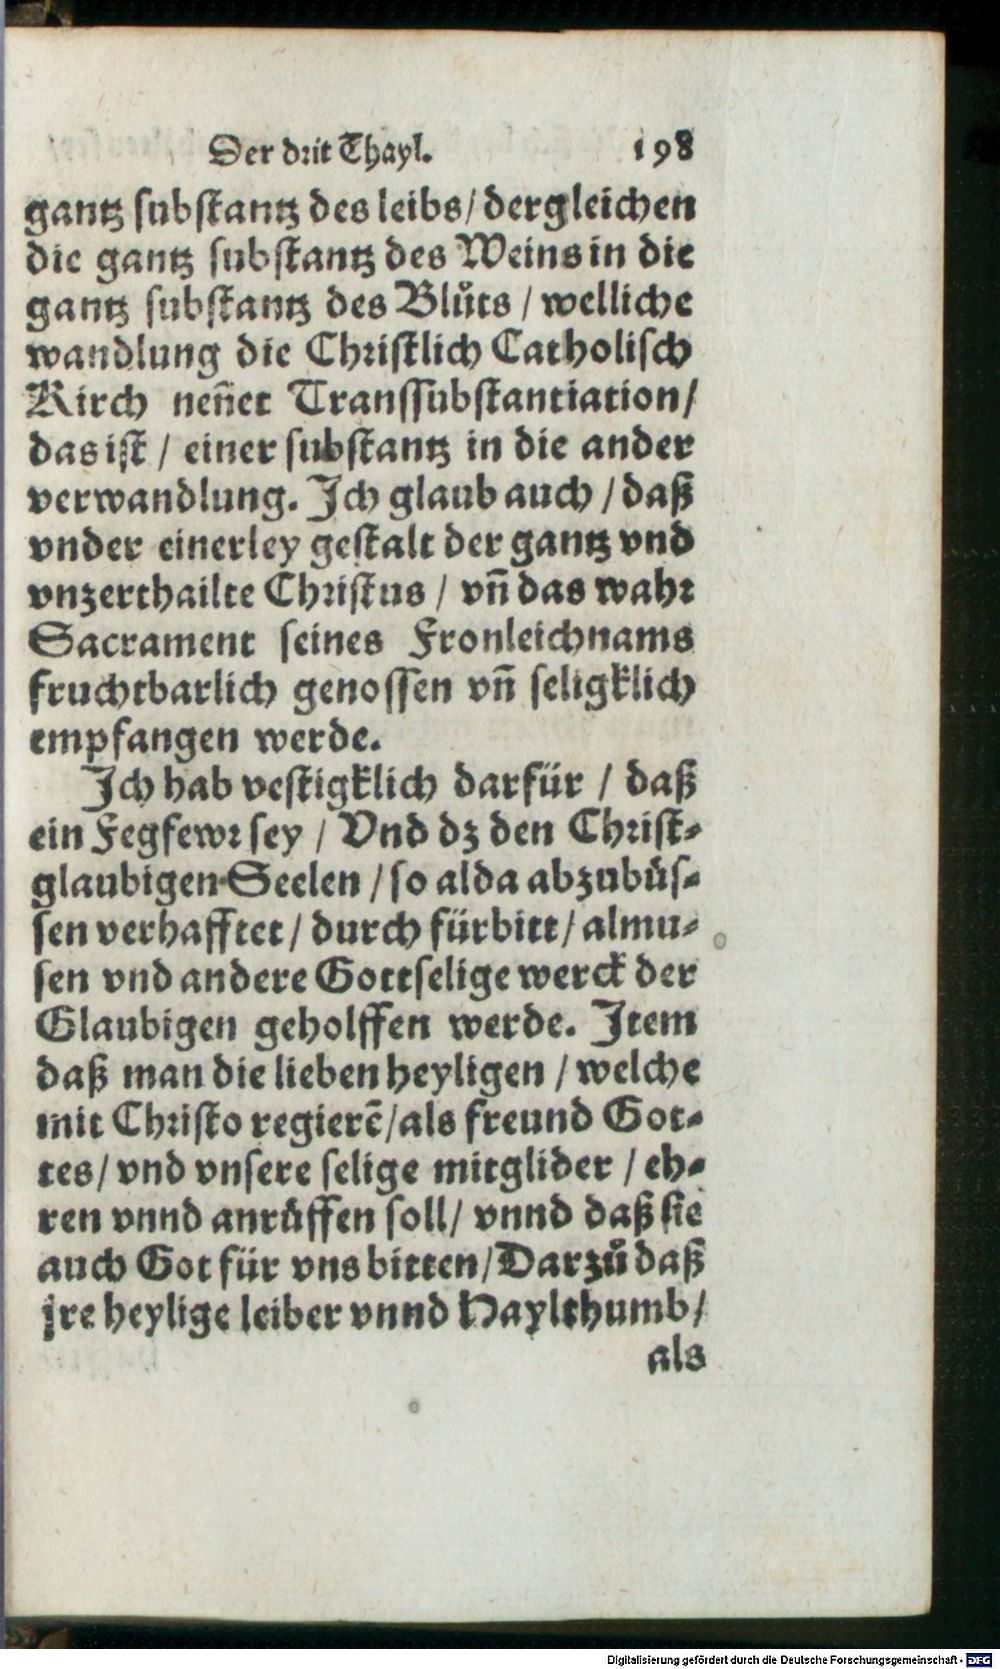 Der drit Thayl. 198
gantz substantz des leibs/ dergleichen
die gantz substantz des Weins in die
gantz substantz des Blůts / welliche
wandlung die Christlich Catholisch
Kirch nen̄et Transsubstantiation/
das ist / einer substantz in die ander
verwandlung. Ich glaub auch / daß
vnder einerley gestalt der gantz vnd
vnzerthailte Christus / vn̄ das wahr
Sacrament seines Fronleichnams
fruchtbarlich genossen vn̄ seligklich
empfangen werde.
Ich hab vestigklich darfür / daß
ein Fegfewr sey / Vnd dz den Christ-
glaubigen Seelen / so alda abzubüs-
sen verhafftet / durch fürbitt / almu-
sen vnd andere Gottselige werck der
Glaubigen geholffen werde. Item
daß man die lieben heyligen / welche
mit Christo regierē/ als freund Got-
tes/ vnd vnsere selige mitglider / eh-
ren vnnd anrůffen soll/ vnnd daß sie
auch Got für vns bitten/ Darzů daß
jre heylige leiber vnnd Haylthumb/
als
Digitalisierung gefördert durch die Deutsche Forschungsgemeinschaft - DFG